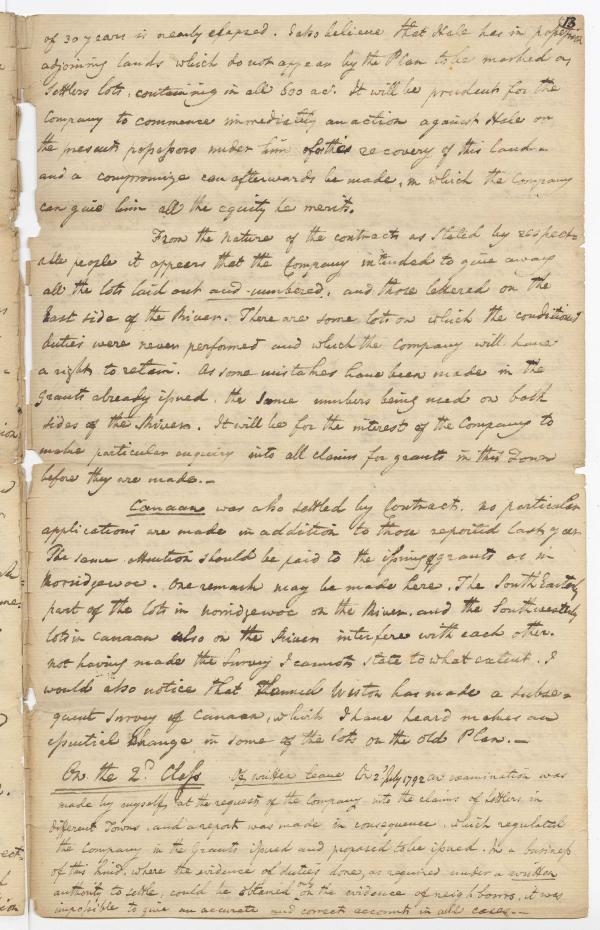 13
of 30 years is nearly elapsed. I also believe that Hale has in possession
adjoining lands which do not appear by the Plan to be marked on,
Settlers lots, containing in all 500 acs. It will be prudent for the
Company to commence immediately an action against Hale or
the present possessors under him for the recovery of this land—
and a compromize can afterwards be made, in which the Company
can give him all the equity he merits.
From the nature of the contracts as stated by respect=
able people it appears that the Company intended to give away
all the lots laid out and numbered, and those lettered on the
East side of the River. There are some lots on which the conditions
duties were never performed and which the Company will have
a right to retain. As some mistakes have been made in the
grants already issued, the same numbers being used on both
sides of the River. It will be for the interest of the Company to
make particular enquiry into all claims for grants in this Town
before they are made.—
Canaan was also settled by Contract. no particular
applications are made in addition to those reported last year
The same attention should be paid to the issuing of grants as in
Norridgewoc. One remark may be made here, The South Easterly
part of the lots in norridgewoc on the River, and the Southwesterly
lots in Canaan also on the River interfere with each other.
not having made the Survey I cannot state to what extent. I
would also notice that Samuel Weston has made a subse=
quent Survey of Canaan, which I have heard makes an
essential change in some of the lots on the old Plan.—
On the 2d. Class Of written leave On 2d July 1792 an examination was
made by myself, at the request of the Company, into the claims of Settlers in
different Towns, and a report was made in consequence, which regulated
the Company in the Grants issued and proposed to be issued. In a business
of this kind, where the evidence of duties done, as required under a written
authority to settle, could be obtained only on the evidence of neighbours, it was
impossible to give an accurate and correct account in all cases.—